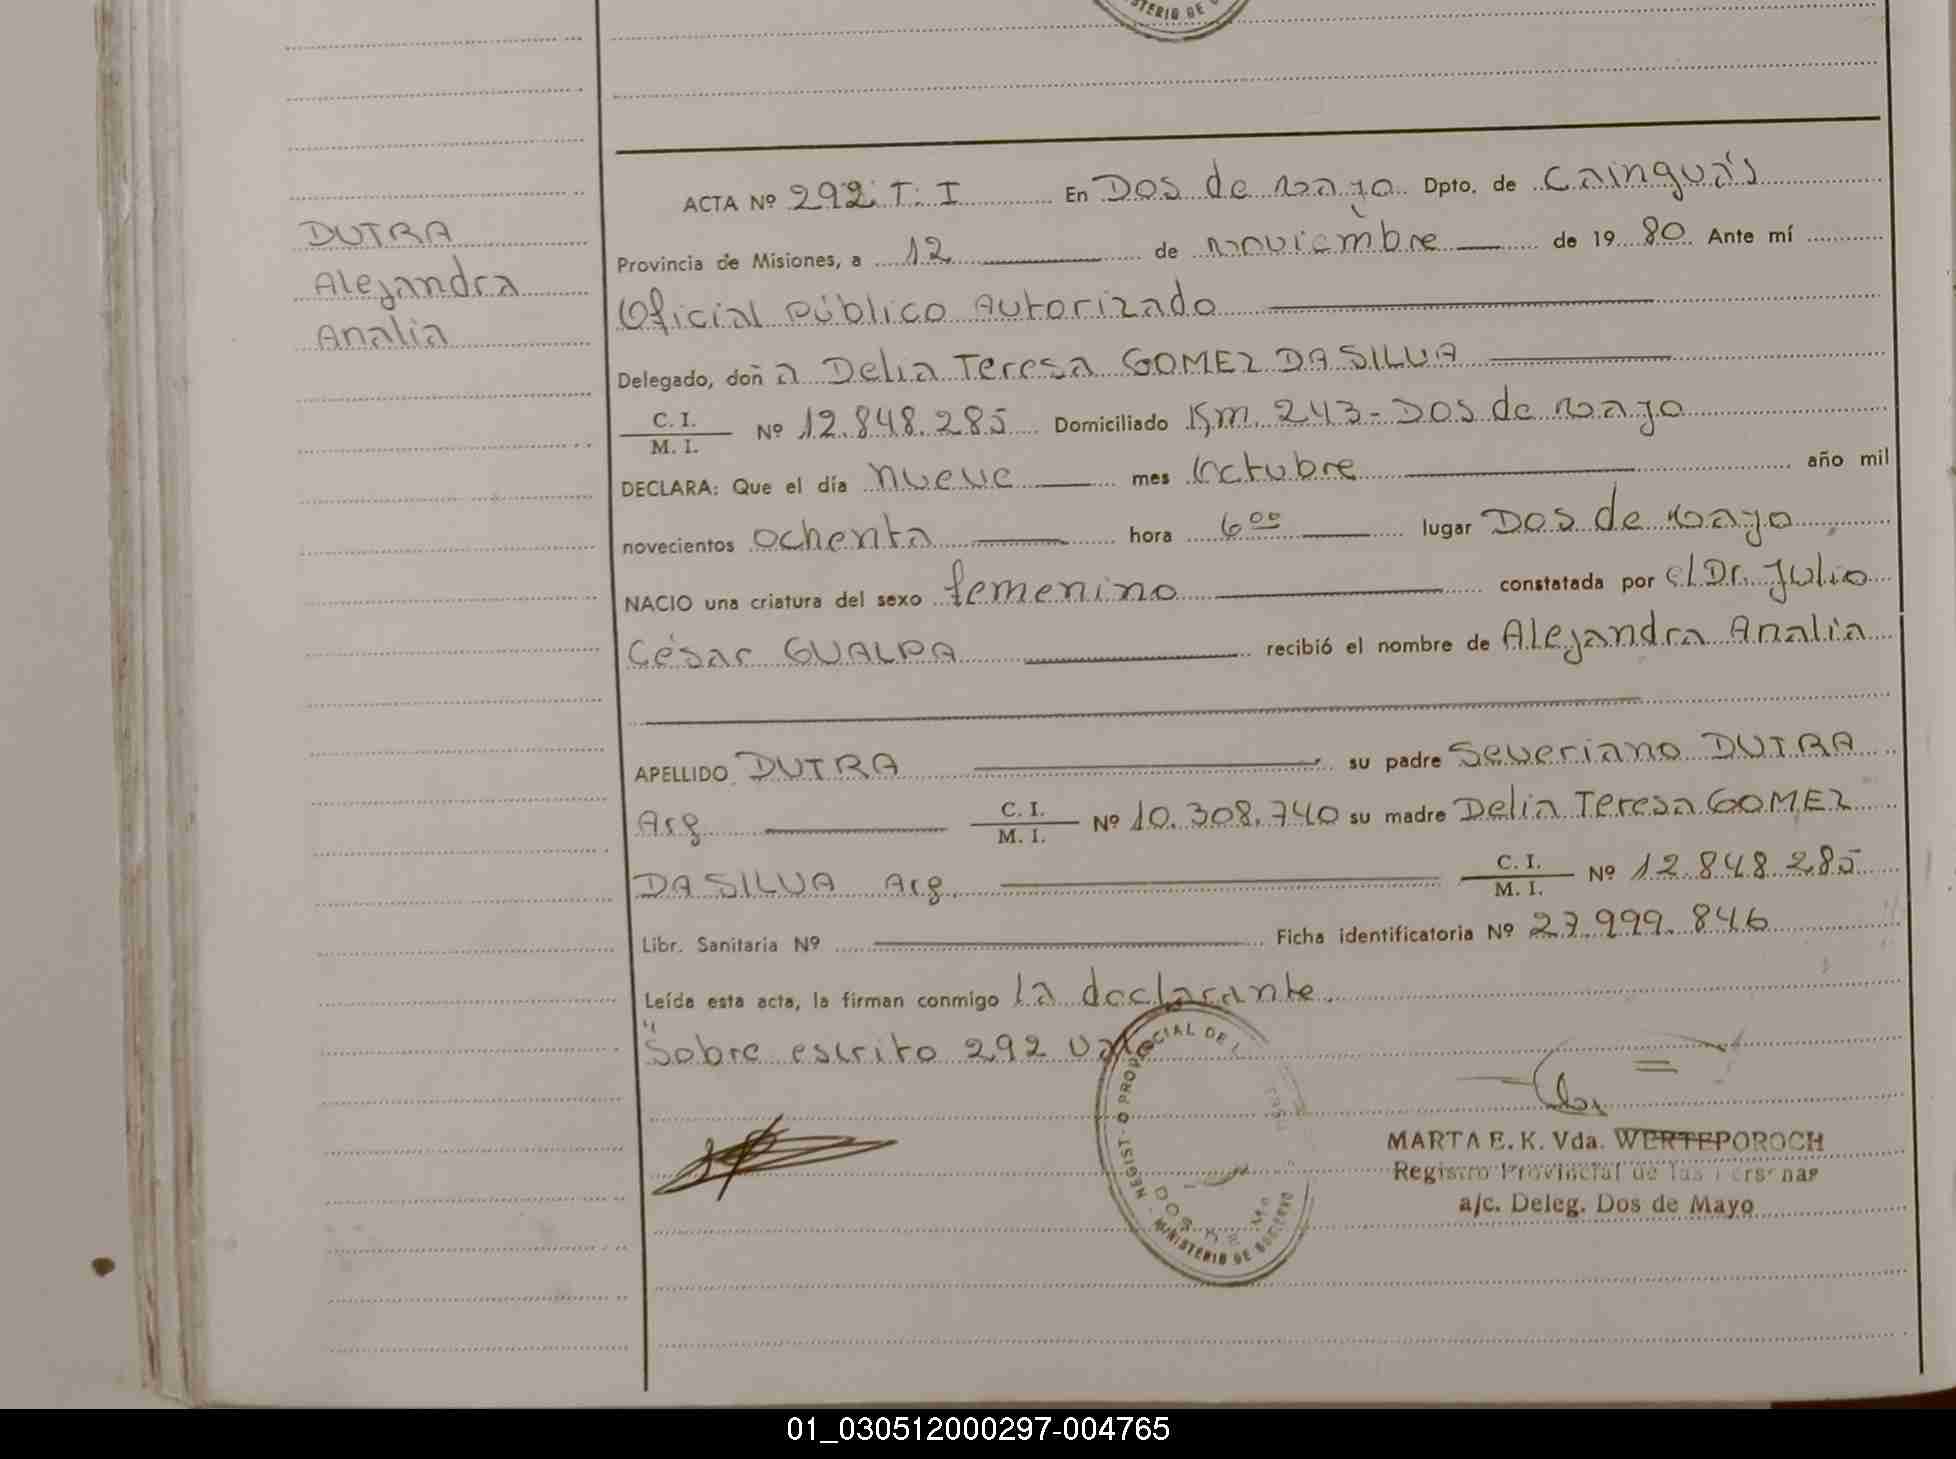 STERIO DE
ACTA Nº 292 T. I En Dos de mayo Dpto. de Cainguás
DUTRA
Alejandra
Analia
Provincia de Misiones, a 12 de noviembre de 1980 Ante mí
Oficial Público Autorizado
Delegado, doña Delia Teresa GOMEZ DASILVA
C. I.
M. I. Nº 12.848.285 Domiciliado Km. 243 - Dos de mayo
DECLARA: Que el día nueve mes Octubre año mil
novecientos ochenta hora 6⁰⁰ lugar Dos de mayo
NACIO una criatura del sexo femenino constatada por el Dr. Julio
César GUALPA recibió el nombre de Alejandra Analía
APELLIDO DUTRA su padre Severiano DUTRA
Arg C. I.
M. I. Nº 10.308.740 su madre Delia Teresa GOMEZ
DASILVA Arg. C. I.
M. I. Nº 12.848.285
Libr. Sanitaria Nº Ficha identificatoria Nº 27.999.846
Leída esta acta, la firman conmigo la declarante.
Sobre escrito 292 Vale
PROVINCIAL DE
MINISTERIO DE GOBIERNO
MARTA E. K. Vda. WERTEPOROCH
Registro Provincial de las Personas
a/c. Deleg. Dos de Mayo
01_030512000297-004765